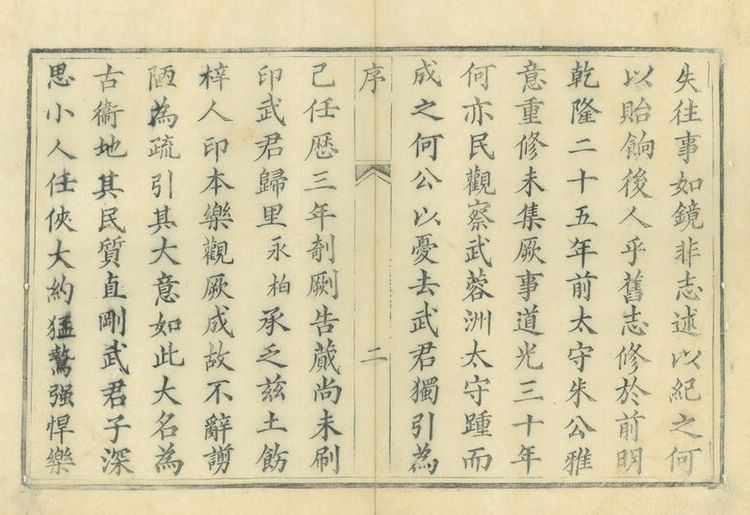 失往事如鏡非志述以紀之何
以貽餉後人乎舊志修於前明
乾隆二十五年前太守朱公雅
意重修未集厥事道光三十年
何亦民觀察武蓉洲太守踵而
成之何公以憂去武君獨引為
序
二
己任歷三年剞劂告蕆尚未刷
印武君歸里永柏承乏茲土飭
梓人印本樂觀厥成故不辭謭
陋為疏引其大意如此大名為
古衛地其民質直剛武君子深
思小人任俠大約猛鷙强悍樂